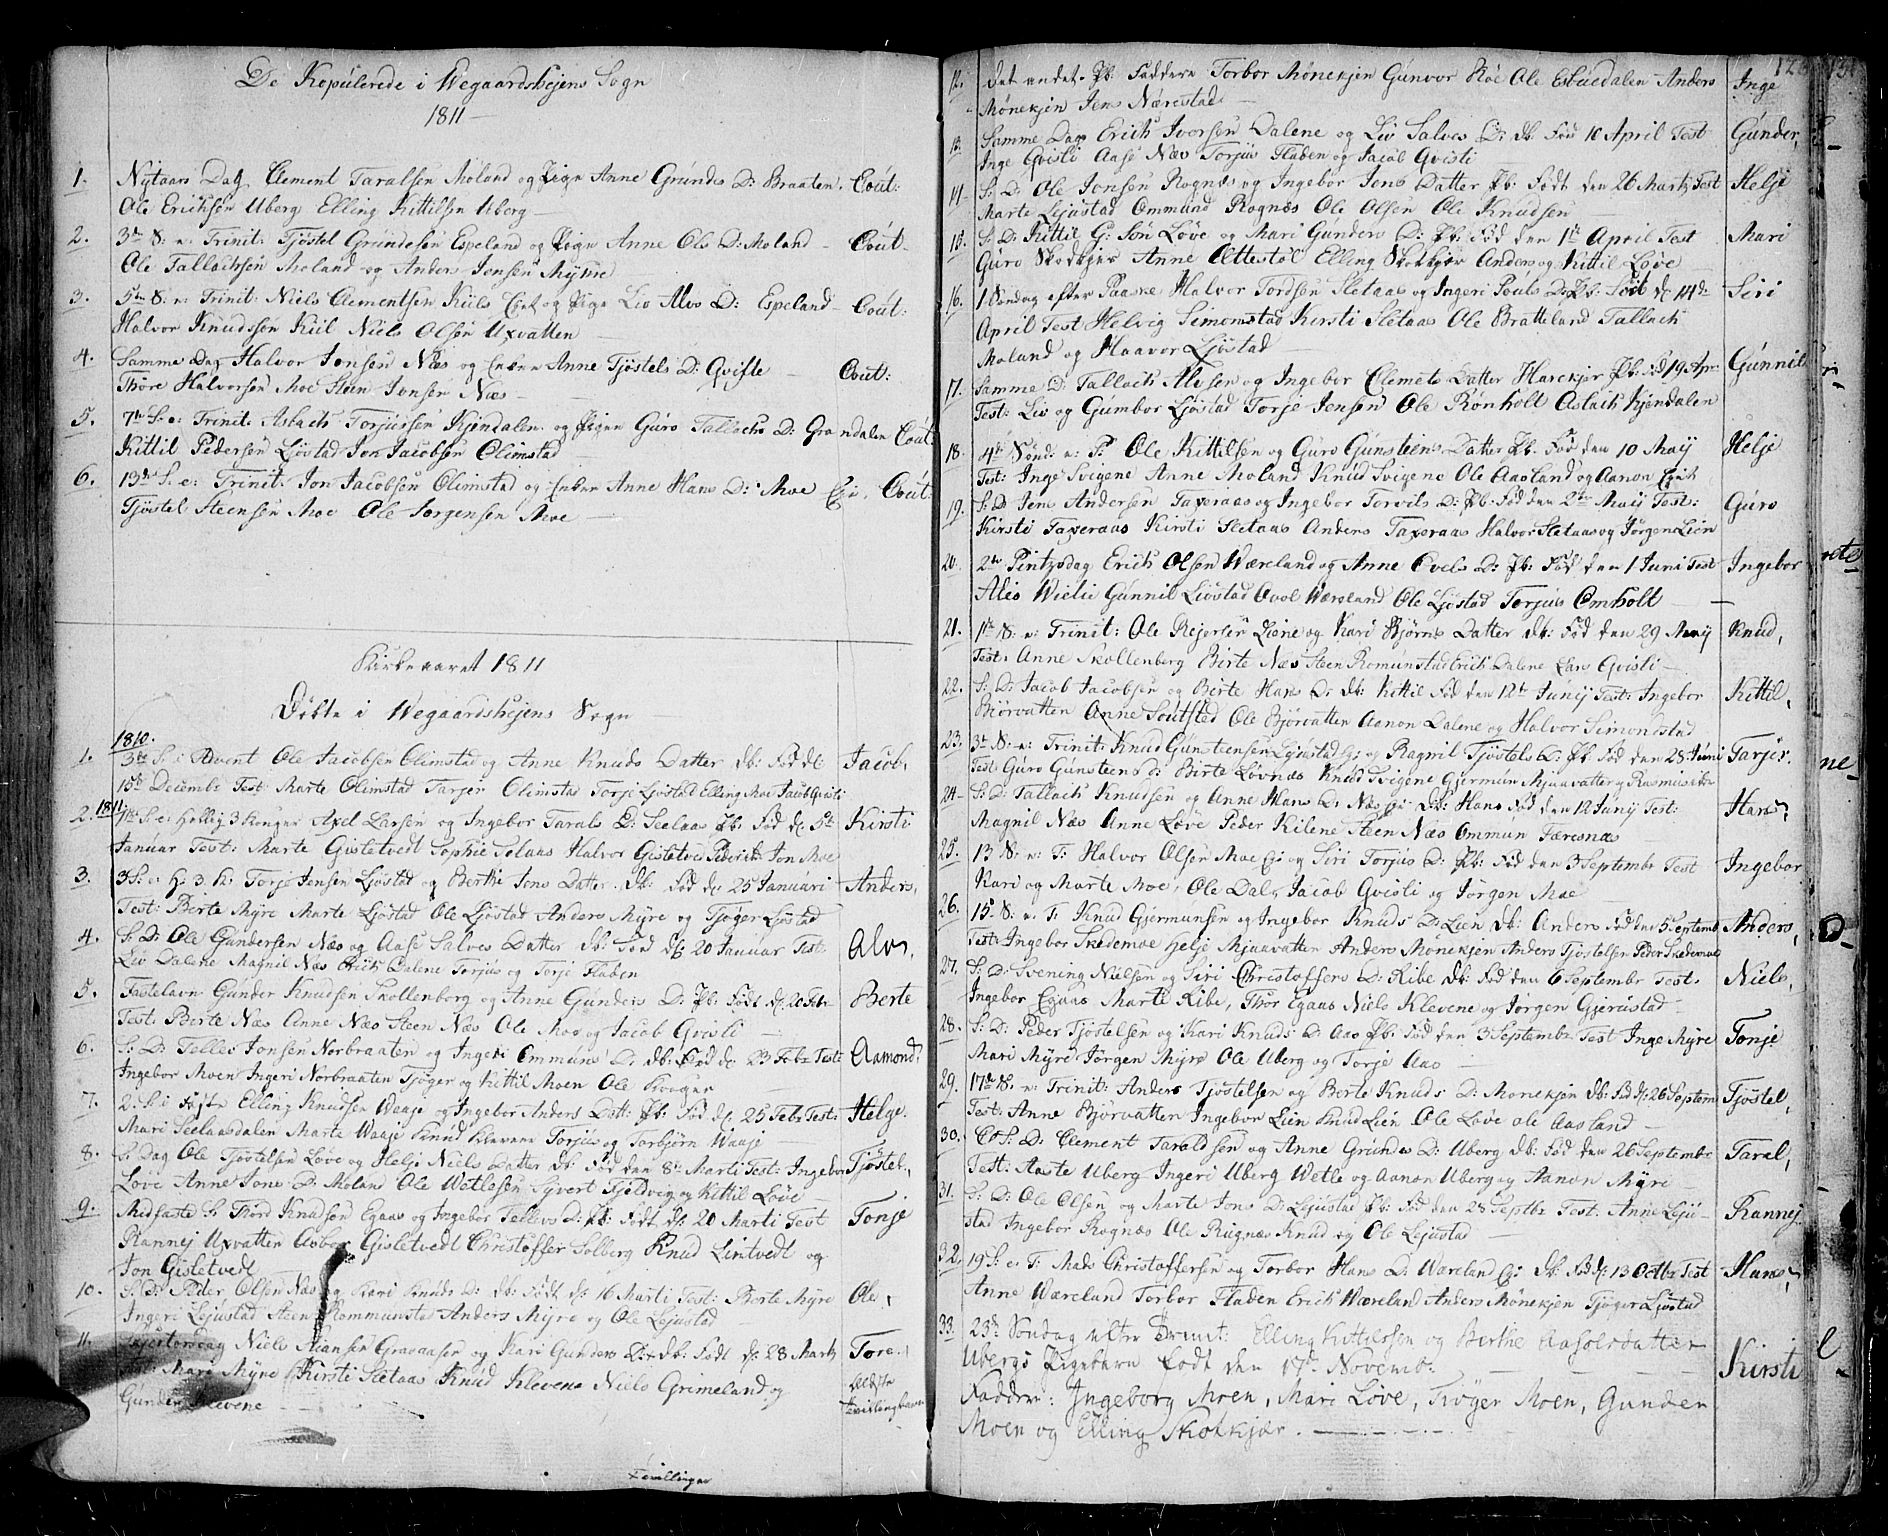 De Kopulerede i Wegaardshejens Sogn
1811
1. Nytaars Dag Clement Taralsen Moland og Pign Anne Grundes D: Braaten. Cout:
Ole Ericksen Uberg Elling Kittilsen Uberg
2. 3de S: e: Trinit: Tjøstel Grundesen Espeland og Pign Anne Ols D: Moland Cout:
Ole Tallachsen Moland og Anders Jensen Myhre
3. 5te S: e: Trinit: Niels Clementsen Kiils og Pign Liv Alvs D: Espeland Cout:
Halvor Knudsen Kiil Niels Olsen Uxvatten
4. Samme Dag Halvor Jonsen Næs og Enken Anne Tjøstels D: Gviste Cout:
Thore Halvorsen Moe Steen Jonsen Næs
5. 7de S: e: Trinit: Aslach Torjussen Kjendalen og Pigen Guro Tallachs D: Grandalen Cout:
Kittil Pedersen Ljøstad Jon Jacobsen Olimstad
6. 13de S: e: Trinit: Jon Jacobsen Olimstad og Enken Anne Hans D: Moe Cout:
Tjøstel Steensen Moe Ole Jørgensen Moe
Kirkeaaret 1811
Døbte i Wegaardshejens Sogn
1810.
1. 3de S: i Advent Ole Jacobsen Olimstad og Anne Knuds Datter Db: Fød d: Jacob,
15de Decembr Test: Marte Olimstad Tarjer Olimstad Torje Ljøstad Elling Moe Jacob Gvisti
2. 1811 1te S: e: Hellig 3 Konger Axel Larsen og Ingebor Tarals D: Seelaas Pb: Fød d: 5te Kirsti
Januar Test: Marte Gisletvedt Sophie Selaas Halvor Gisletvedt Jon Moe
3. 3 S: e: H: 3: K: Torje Jensen Ljøstad og Berthe Jons Datter Db: Fød d: 25 Januari Anders,
Test: Berte Myre Marte Ljøstad Ole Ljøstad Anders Myre og Tjøger Ljøstad
4. S: D: Ole Gundersen Næs og Aase Salves Datter Db: Fød d: 20 Januar Test: Alv,
Liv Dalene Magnil Næs Erich Dalene Torjus og Torje Fladen
5. Fastelavn Gunder Knudsen Skollenborg og Anne Gunders D: Pb: Født d: 20 Febr Berte
Test: Berte Næs Anne Næs Steen Næs Ole Moe og Jacob Gvisti
6. S: D: Tellev Jonsen Norbraaten og Ingeri Ommuns D: Db: Fød d: 23 Febr Test: Aamond,
Ingebor Moen Ingeri Norbraaten Tjøger og Kittil Moen Ole
7. 2: S: i Faste Elling Knudsen Waaje og Ingebor Anders Datt: Pb: Fød d: 25 Febr Test: Helge.
Mari Seelaasdalen Marte Waaje Knud Klevene Torjus og Torbjørn Waaje
8. S: Dag Ole Tjøstelsen Løve og Helje Niels Datter Db: Fød den 8de Marti Test: Ingebor Tjøstel,
Løve Anne Jons D: Moland Ole Wetlesen Syvert Fjeldvig og Kittil Løve
9. Midfaste S: Thord Knudsen Egaas og Ingebor Tellevs D: Pb: Født d: 20 Marti Test Tonje
Rannej Uxvatten Aasbor Gisletvedt Christoffer Solberg Knud Lintvedt og
Jon Gisletvedt
10. S: D: Peder Olsen Næs og Kari Knuds D: Db: Født d: 16 Marti Test: Berte Myre Ole,
Ingeri Lejustad Steen Rommunstad Anders Myre og Ole Lejustad
11. Skjertorsdag Niels Niansen Gravaasen og Kari Gunders D: Db: Født d: 28 Marti Tore
Test: Mari Myre Kirsti Sletaas Knud Klevene Niels Grimeland og ældste
Gunder Klevene Tvillingbarn
Tvillinger
12. det andet Pb. Faddere Torbor Mønekjen Gunvor Røe Ole Esbuedalen Anders Inge
Mønekjen Jens Nærestad
13. Samme Dag Erich Iversen Dalene og Liv Salves D: Db: Fød 10 April Test Gunder,
Inge Gvisti Aase Næs Torjus Fladen og Jacob Gvisti
14. S: D: Ole Jonsen Rognæs og Ingebor Jens Datter Pb: Født den 26 Marti Test Helje
Marte Lejustad Ommund Rognæs Ole Olsen Ole Knudsen
15. S: D: Kittil G: Søn Løve og Mari Gunders D: Pb: Fød den 1te April Test Mari
Guro Skotkjær Anne Ættestøl Elling Skotkjær Anders og Kittil Løve
16. 1 Søndag efter Paaske Halvor Tordsen Sletaas og Ingeri Pouls D: Pb: Født d: 14de Siri
April Test Helvig Simonstad Kirsti Sletaas Ole Bratteland Tallach
Moland og Haavor Ljøstad
17. Samme D: Tallach Alfsen og Ingebor Clemets Datter Harekjær Pb: Fød 19 Apr: Gunnil
Test: Liv og Gumbor Ljøstad Torje Jensen Ole Rønholt Aslach Kjendalen
18. 4de Sønd: e: P: Ole Kittilsen og Guro Gunsteens Datter Pb: Fød den 10 Maij Helje
Test: Inge Svigene Anne Moland Knud Svigene Ole Aasland og Aanon
19. S: D: Jens Andersen Taxeraas og Ingebor Torvils D: Pb: Fød den 2den Maij Test: Guro
Kirsti Taxeraas Kirsti Sletaas Anders Taxeraas Halvor Sletaas og Jørgen Lien
20. 2den Pintzsdag Erich Olsen Wæreland og Anne Evels D: Pb: Fød den 1 Juni Test Ingebor
Alis Wielie Gunnil Liøstad Avol Wæreland Ole Ljøstad Torjus Omholt
21. 1te S: e: Trinit: Ole Rejersen Liene og Kari Bjørns Datter Db: Fød den 29 Maij Knud,
Test: Anne Skollenberg Birte Næs Steen Romunstad Erich Dalene Lars Gvisti
22. S: D: Jacob Jacobsen og Birte Hans D: Db: Kittil Fød den 12te Junij Test: Ingebor Kittil,
Biørvatten Anne Ole Bjørvatten Aanon Dalene og Halvor Simondstad
23. 3de S: e: Trinit: Knud Gunsteensen Lejustad og Ragnil Tjøstels D: Pb: Fød den 25 Juni Tarjer.
Test: Guro Gunsteens D: Birte Løvnæs Knud Svigene Gjermun Mjaavatten og Rasmus
24. S: D: Tallach Knudsen og Anne Hans D: Næs Db: Hans Fød den 12 Junij Test: Hans,
Magnil Næs Anne Løve Peder Kilene Steen Næs Ommun Færesnæs
25. 13 S: e: T: Halvor Olsen Moe og Siri Torjus D: Pb: Fød den 3 Septembr Test Ingebor
Kari og Marte Moe, Ole Dal, Jacob Gvisti og Jørgen Moe
26. 15de S: e: T: Knud Gjermunsen og Ingebor Knuds D: Lien Db: Anders Fød den 5 Septemb Anders,
Test: Ingebor Skedemoe Helje Mjaavatten Anders Mønekjen Anders Tjøstelsen Peder Skedemoe
27. S: D: Svening Nielsen og Siri Christoffers D: Ribe Db: Fød den 6 Septembr Test: Niels,
Ingebor Egaas Marte Ribe, Thor Egaas Niels Klevene og Jørgen Gjerustad
28. S: D: Peder Tjøstelsen og Kari Knuds D: Aas Pb: Fød den 3 Septembr Test Inge Myre Tonje
Mari Myre Jørgen Myre Ole Uberg og Torje Aas
29. 17de S: e: Trinit: Anders Tjøstelsen og Berte Knuds D: Monekjen Db: Fød d: 26 Septem Tjøstel,
Test: Anne Bjørvatten Ingebor Lien Knud Lien Ole Løve Ole Aasland
30. S: D: Clement Taraldsen og Anne Grundes D: Uberg Db: Fød den 26 Septembr Taral,
Test: Aaste Uberg Ingeri Uberg Wetle og Aanon Uberg og Aanon Myre
31. S: D: Ole Olsen og Marte Jons D: Lejustad Pb: Fød den 28 Septbr Test: Anne Leju- Rannej
stad Ingebor Rognæs Ole Rugnæs Knud og Ole Lejustad
32. 19 S: e: T: Mads Christoffersen og Torbor Hans D: Wæreland Db: Fød d: 13 Octbr Test Hans,
Anne Wæreland Torbor Fladen Erich Wæreland Anders Mønekjen Tjøger Ljøstad
33. 23de Søndag efter Trinit: Elling Kittelsen og Berthe Aasolsdatter
Ubergs Pigebarn født den 17de Novemb: Kirsti
Faddere: Ingeborg Moen, Mari Løve, Trøger Moen, Gunder
Moen og Elling Skotkjær.